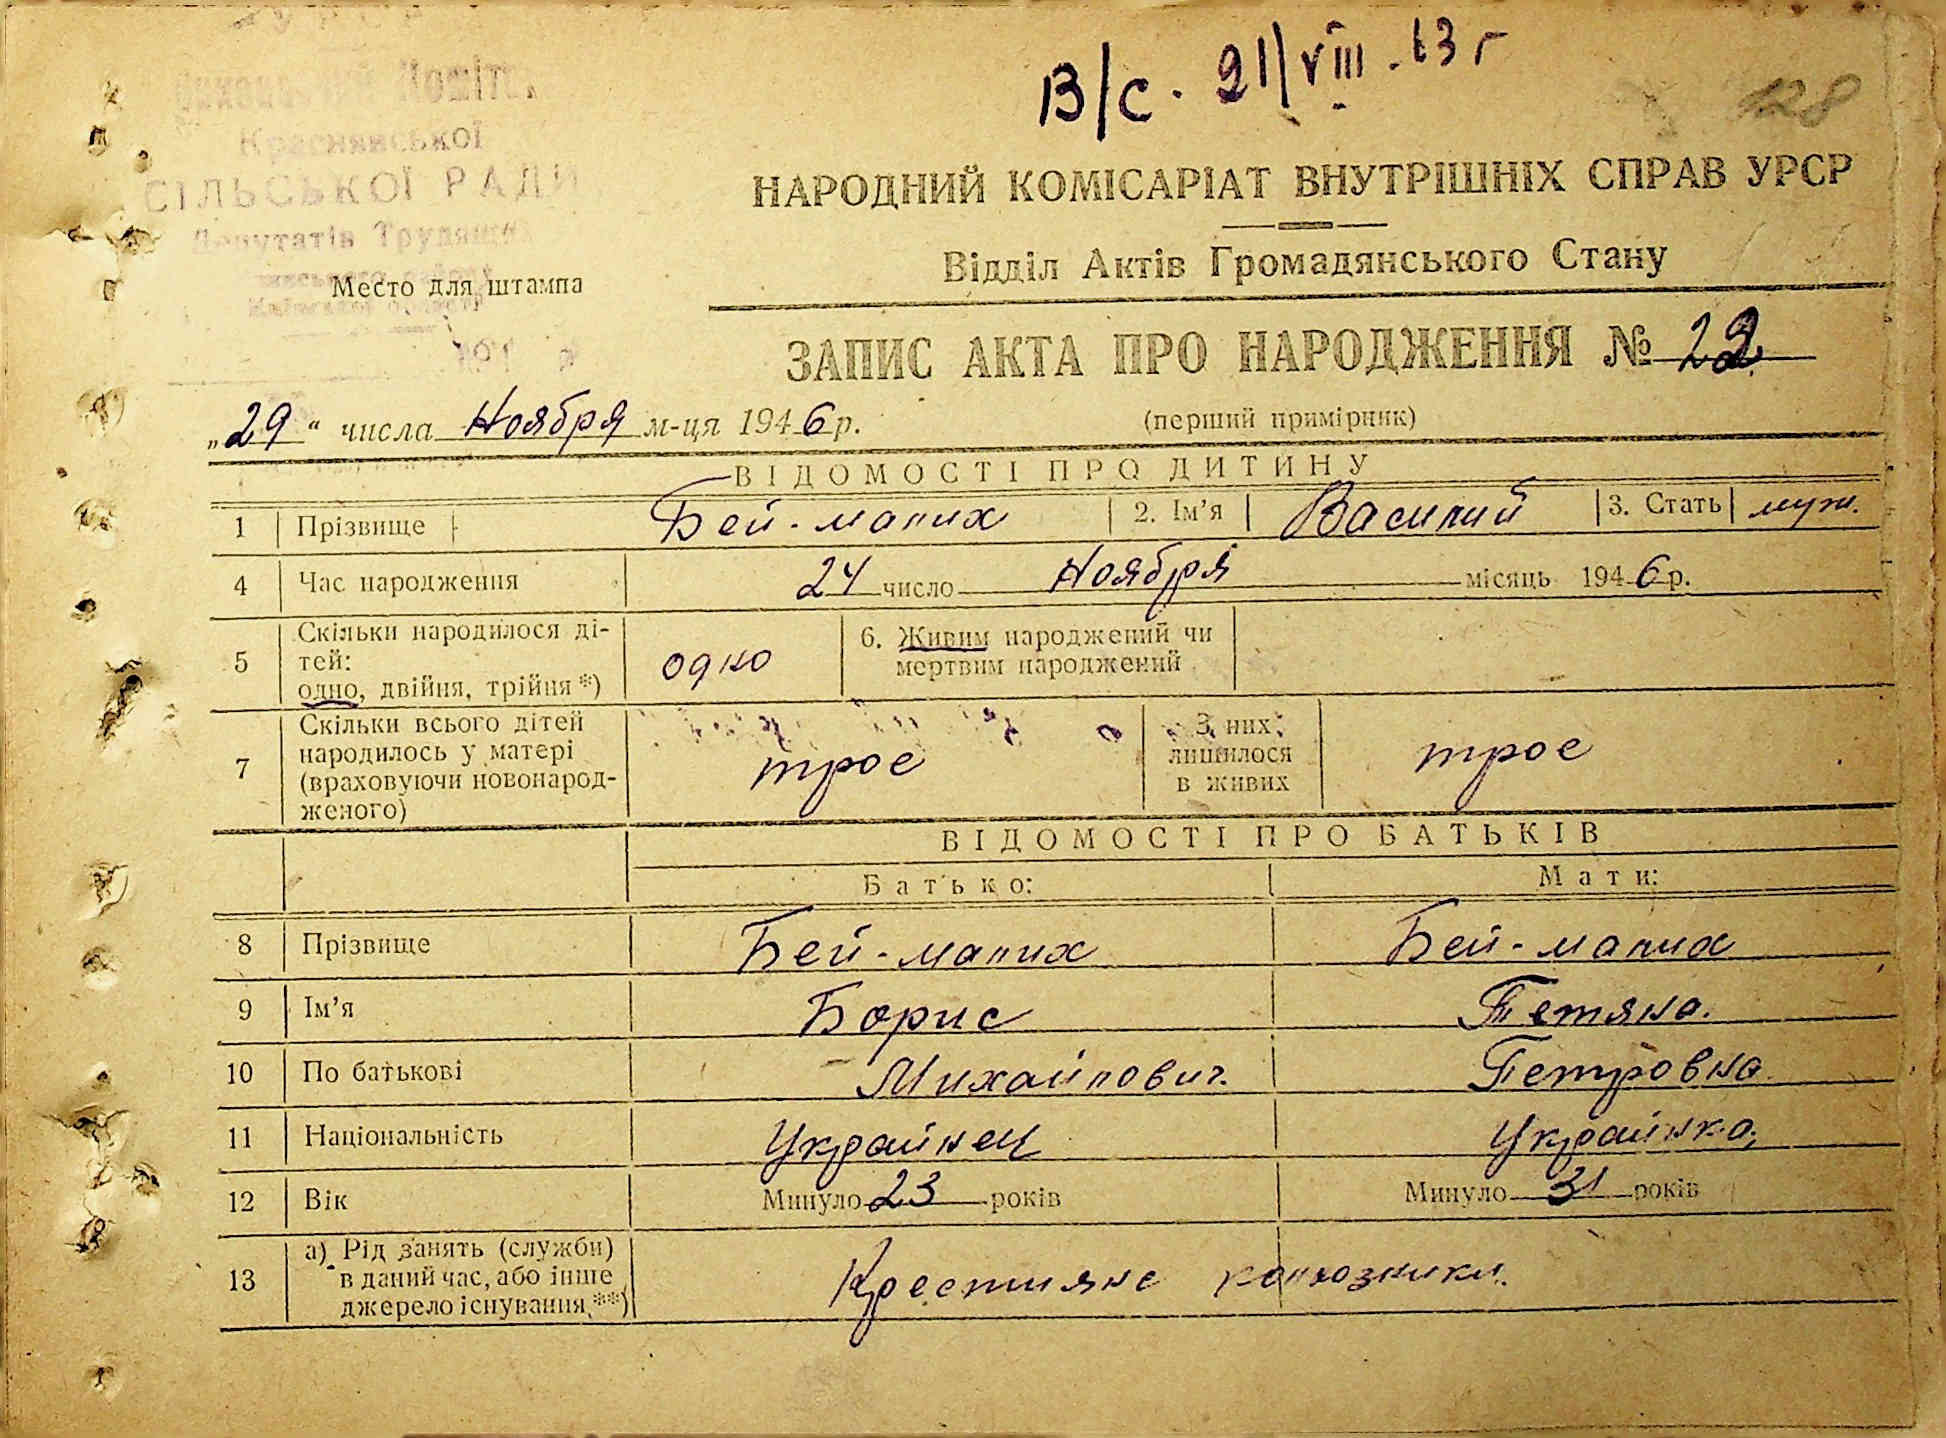 В/С. 21/VIII. 63 г
128
Краснянської
СІЛЬСЬКОЇ РАДИ
Депутатів Трудящих
Место для штампа
НАРОДНИЙ КОМІСАРІАТ ВНУТРІШНІХ СПРАВ УРСР
Відділ Актів Громадянського Стану
ЗАПИС АКТА ПРО НАРОДЖЕННЯ № 22
„29“ числа Ноября м-ця 1946 р.
(перший примірник)
ВІДОМОСТІ ПРО ДИТИНУ
1 Прізвище Бей-малих 2. Ім'я Василий 3. Стать муж.
4 Час народження 24 число Ноября місяць 1946 р.
5 Скільки народилося ді-
тей:
одно, двійня, трійня *)
одно
6. Живим народжений чи
мертвим народжений
7 Скільки всього дітей
народилось у матері
(враховуючи новонарод-
женого)
трое
З них
лишилося
в живих
трое
ВІДОМОСТІ ПРО БАТЬКІВ
Батько: Мати:
8 Прізвище Бей-малих Бей-малих
9 Ім'я Борис Тетяна.
10 По батькові Михайлович. Петровна
11 Національність Украйнец Украинка
12 Вік Минуло 23 років Минуло 31 років
13 а) Рід занять (служби)
в даний час, або інше
джерело існування **)
Крестияне колхозники.